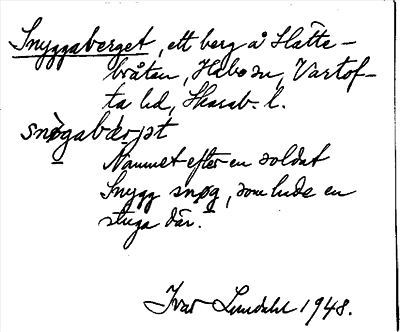 Snyggaberget, ett berg å Slätte-
bråten, Habo sn, Vartof-
ta hd, Skarab. l.
snøgabærjt
Namnet efter en soldat
Snygg snøg, som hade en
stuga där.
Ivar Lundahl 1948.